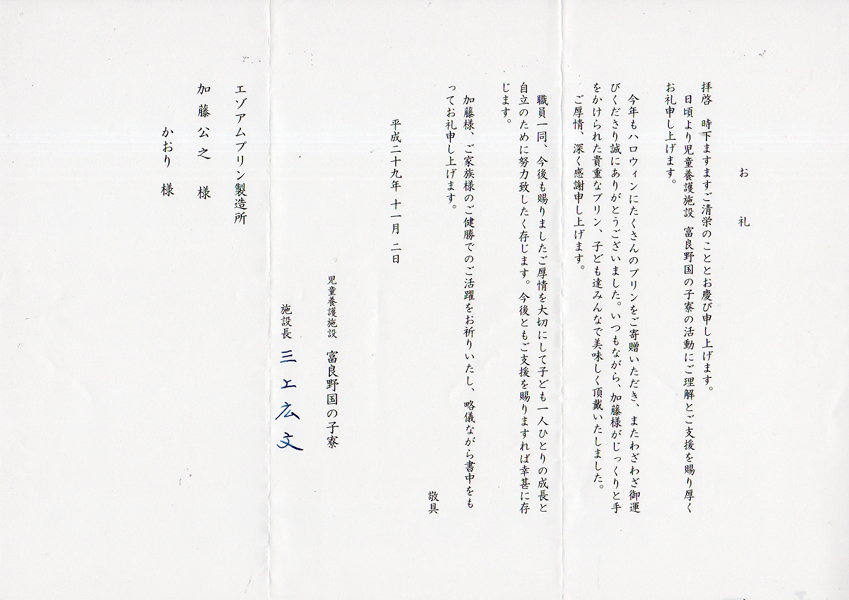 お礼
拝啓　時下ますますご清栄のこととお慶び申し上げます。
日頃より児童養護施設　富良野国の子寮の活動にご理解とご支援を賜り厚く
お礼申し上げます。
今年もハロウィンにたくさんのプリンをご寄贈いただき、またわざわざ御運
びくださり誠にありがとうございました。いつもながら、加藤様がじっくりと手
をかけられた貴重なプリン、子ども達みんなで美味しく頂戴いたしました。
ご厚情、深く感謝申し上げます。
職員一同、今後も賜りましたご厚情を大切にして子ども一人ひとりの成長と
自立のために努力致したく存じます。今後ともご支援を賜りますれば幸甚に存
じます。
加藤様、ご家族様のご健勝でのご活躍をお祈りいたし、略儀ながら書中をも
ってお礼申し上げます。
敬具
平成二十九年　十一月　二日
児童養護施設　富良野国の子寮
施設長　三上広文
エゾアムプリン製造所
加藤公之　様
かおり　様